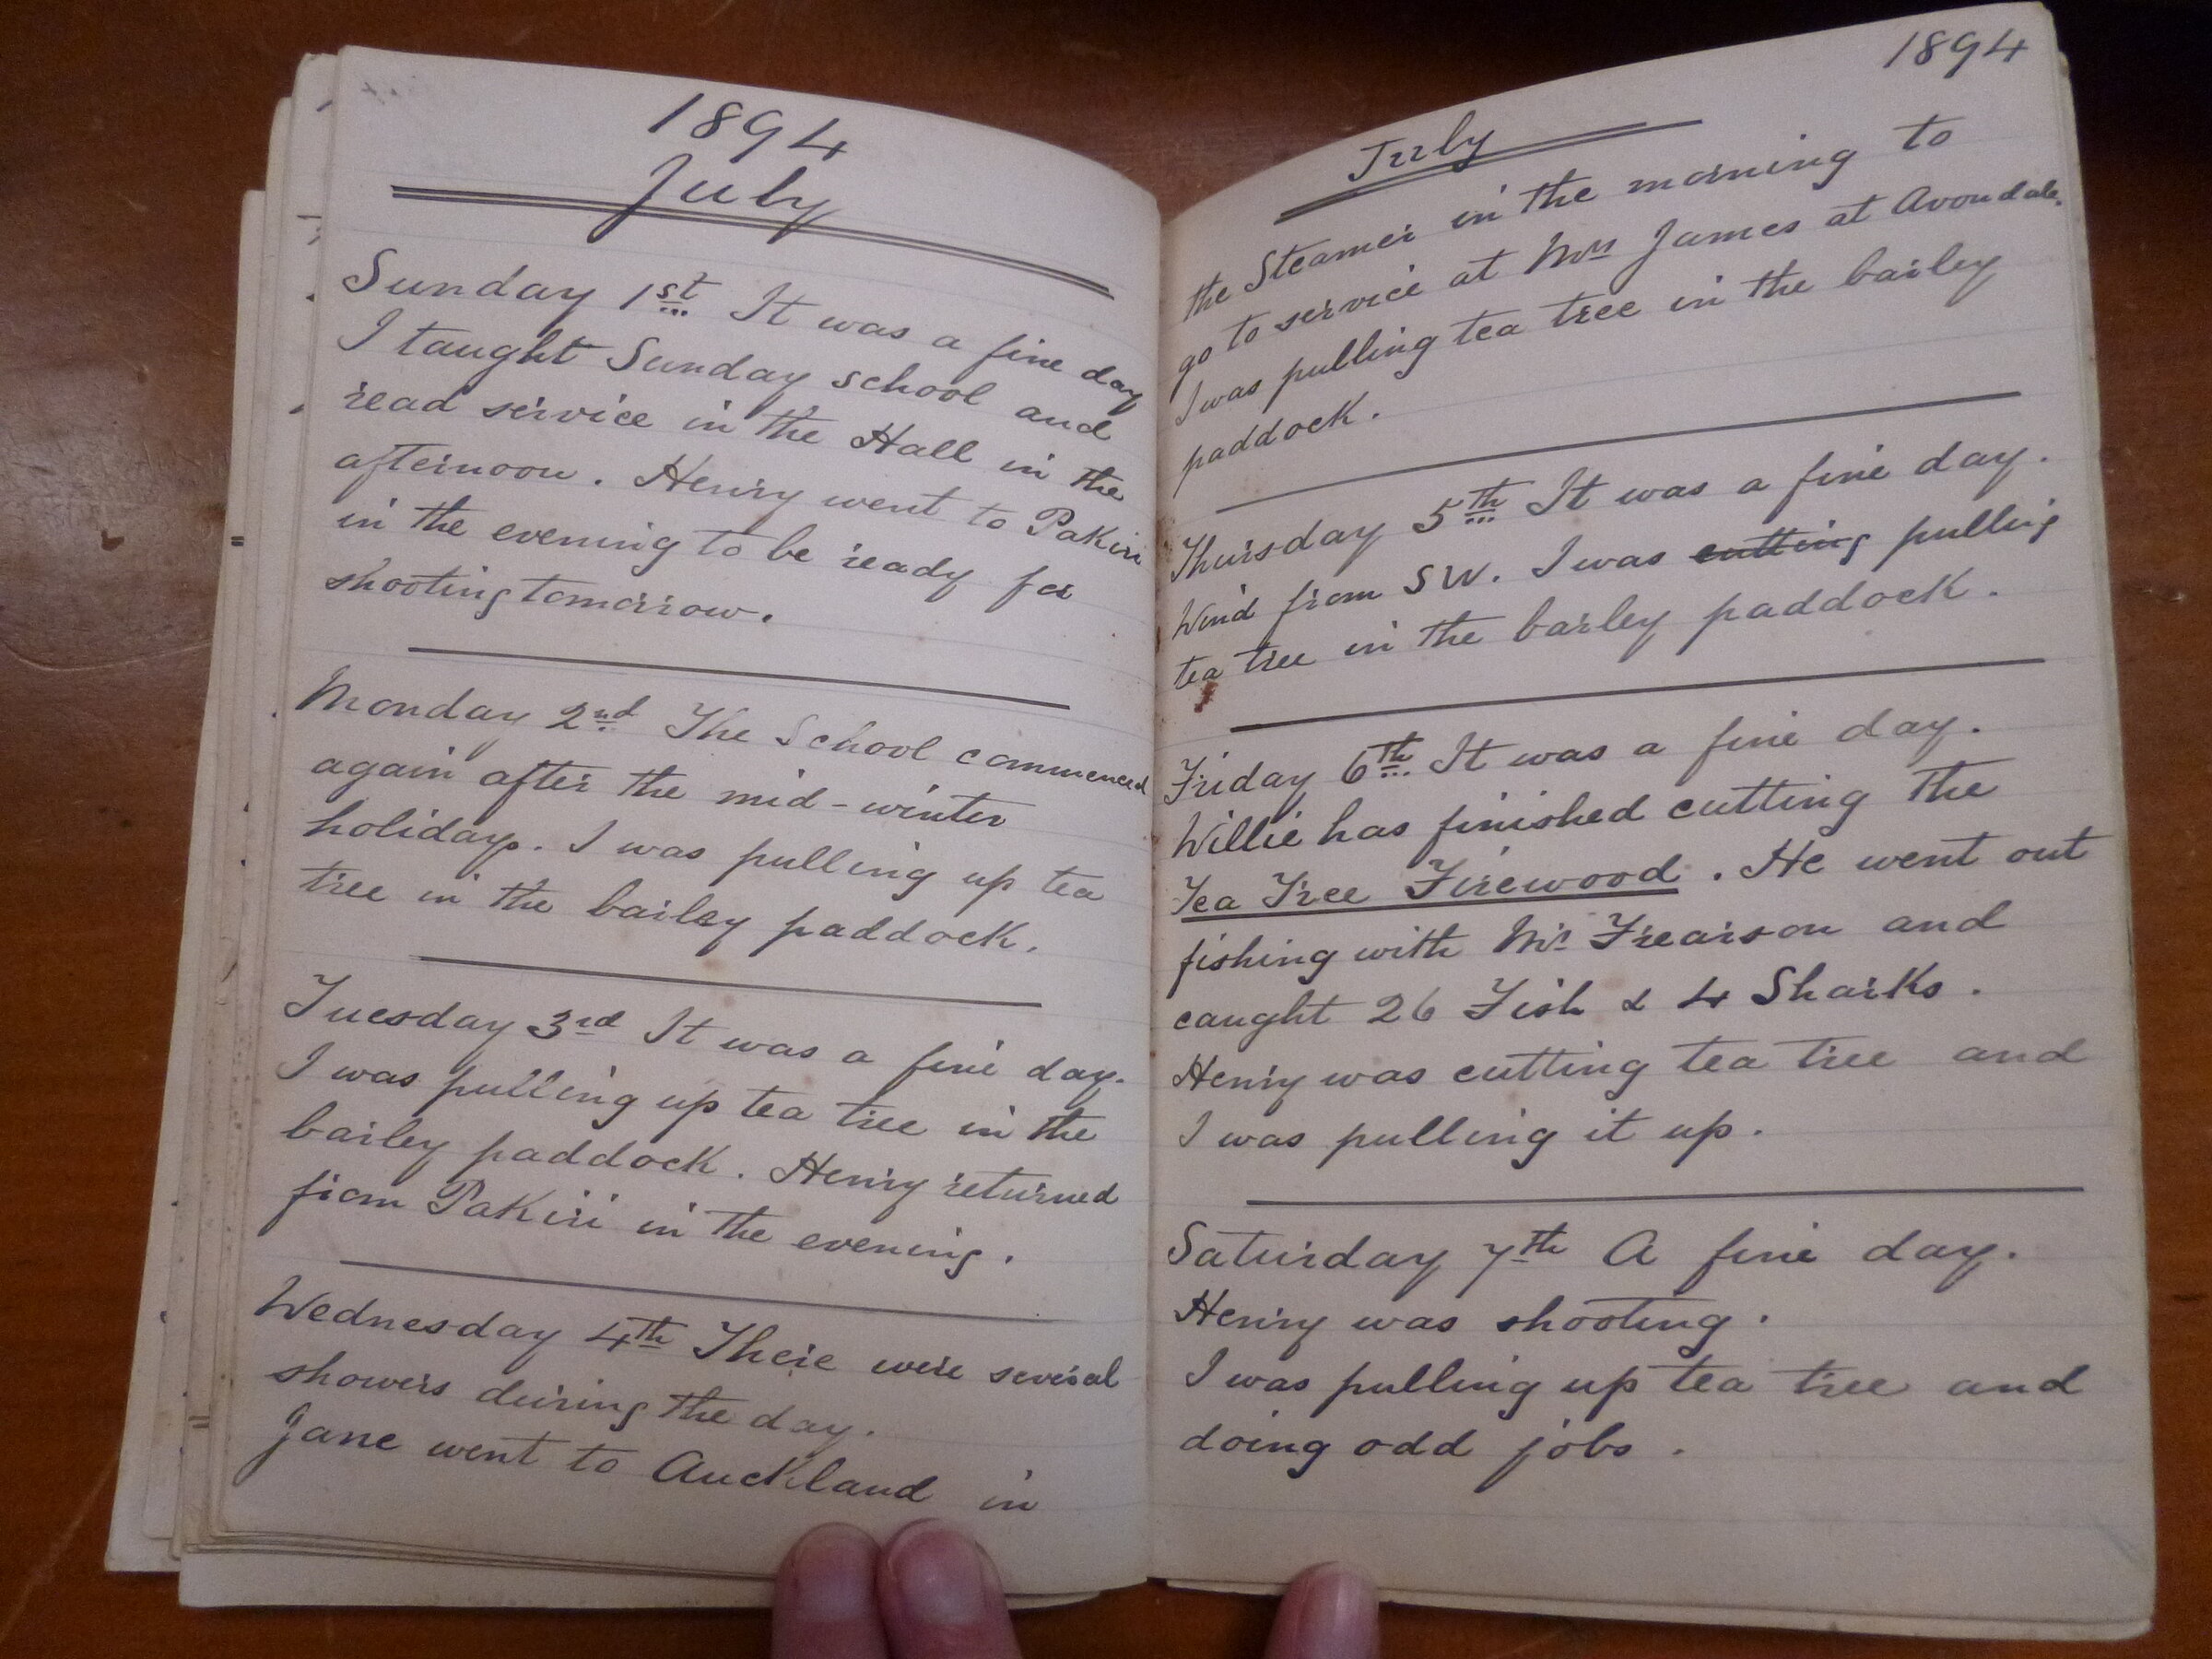 1894
July
Sunday 1st It was a fine day
I taught Sunday school and
read service in the Hall in the
afternoon. Henry went to Pakiri
in the evening to be ready for
shooting tomorrow.
Monday 2nd The School commenced
again after the mid-winter
holidays. I was pulling up tea
tree in the barley paddock.
Tuesday 3rd It was a fine day.
I was pulling up tea tree in the
barley paddock. Henry returned
from Pakiri in the evening.
Wednesday 4th There were several
showers during the day.
Jane went to Auckland in
1894
July
the Steamer in the morning to
go to service at Mrs James at Avondale.
I was pulling tea tree in the barley
paddock.
Thursday 5th It was a fine day.
Wind from SW. I was cutting pulling
tea tree in the barley paddock.
Friday 6th It was a fine day.
Willie has finished cutting the
Tea Tree Firewood. He went out
fishing with Mr Frearson and
caught 26 Fish & 4 Sharks.
Henry was cutting tea tree and
I was pulling it up.
Saturday 7th A fine day.
Henry was shooting.
I was pulling up tea tree and
doing odd jobs.